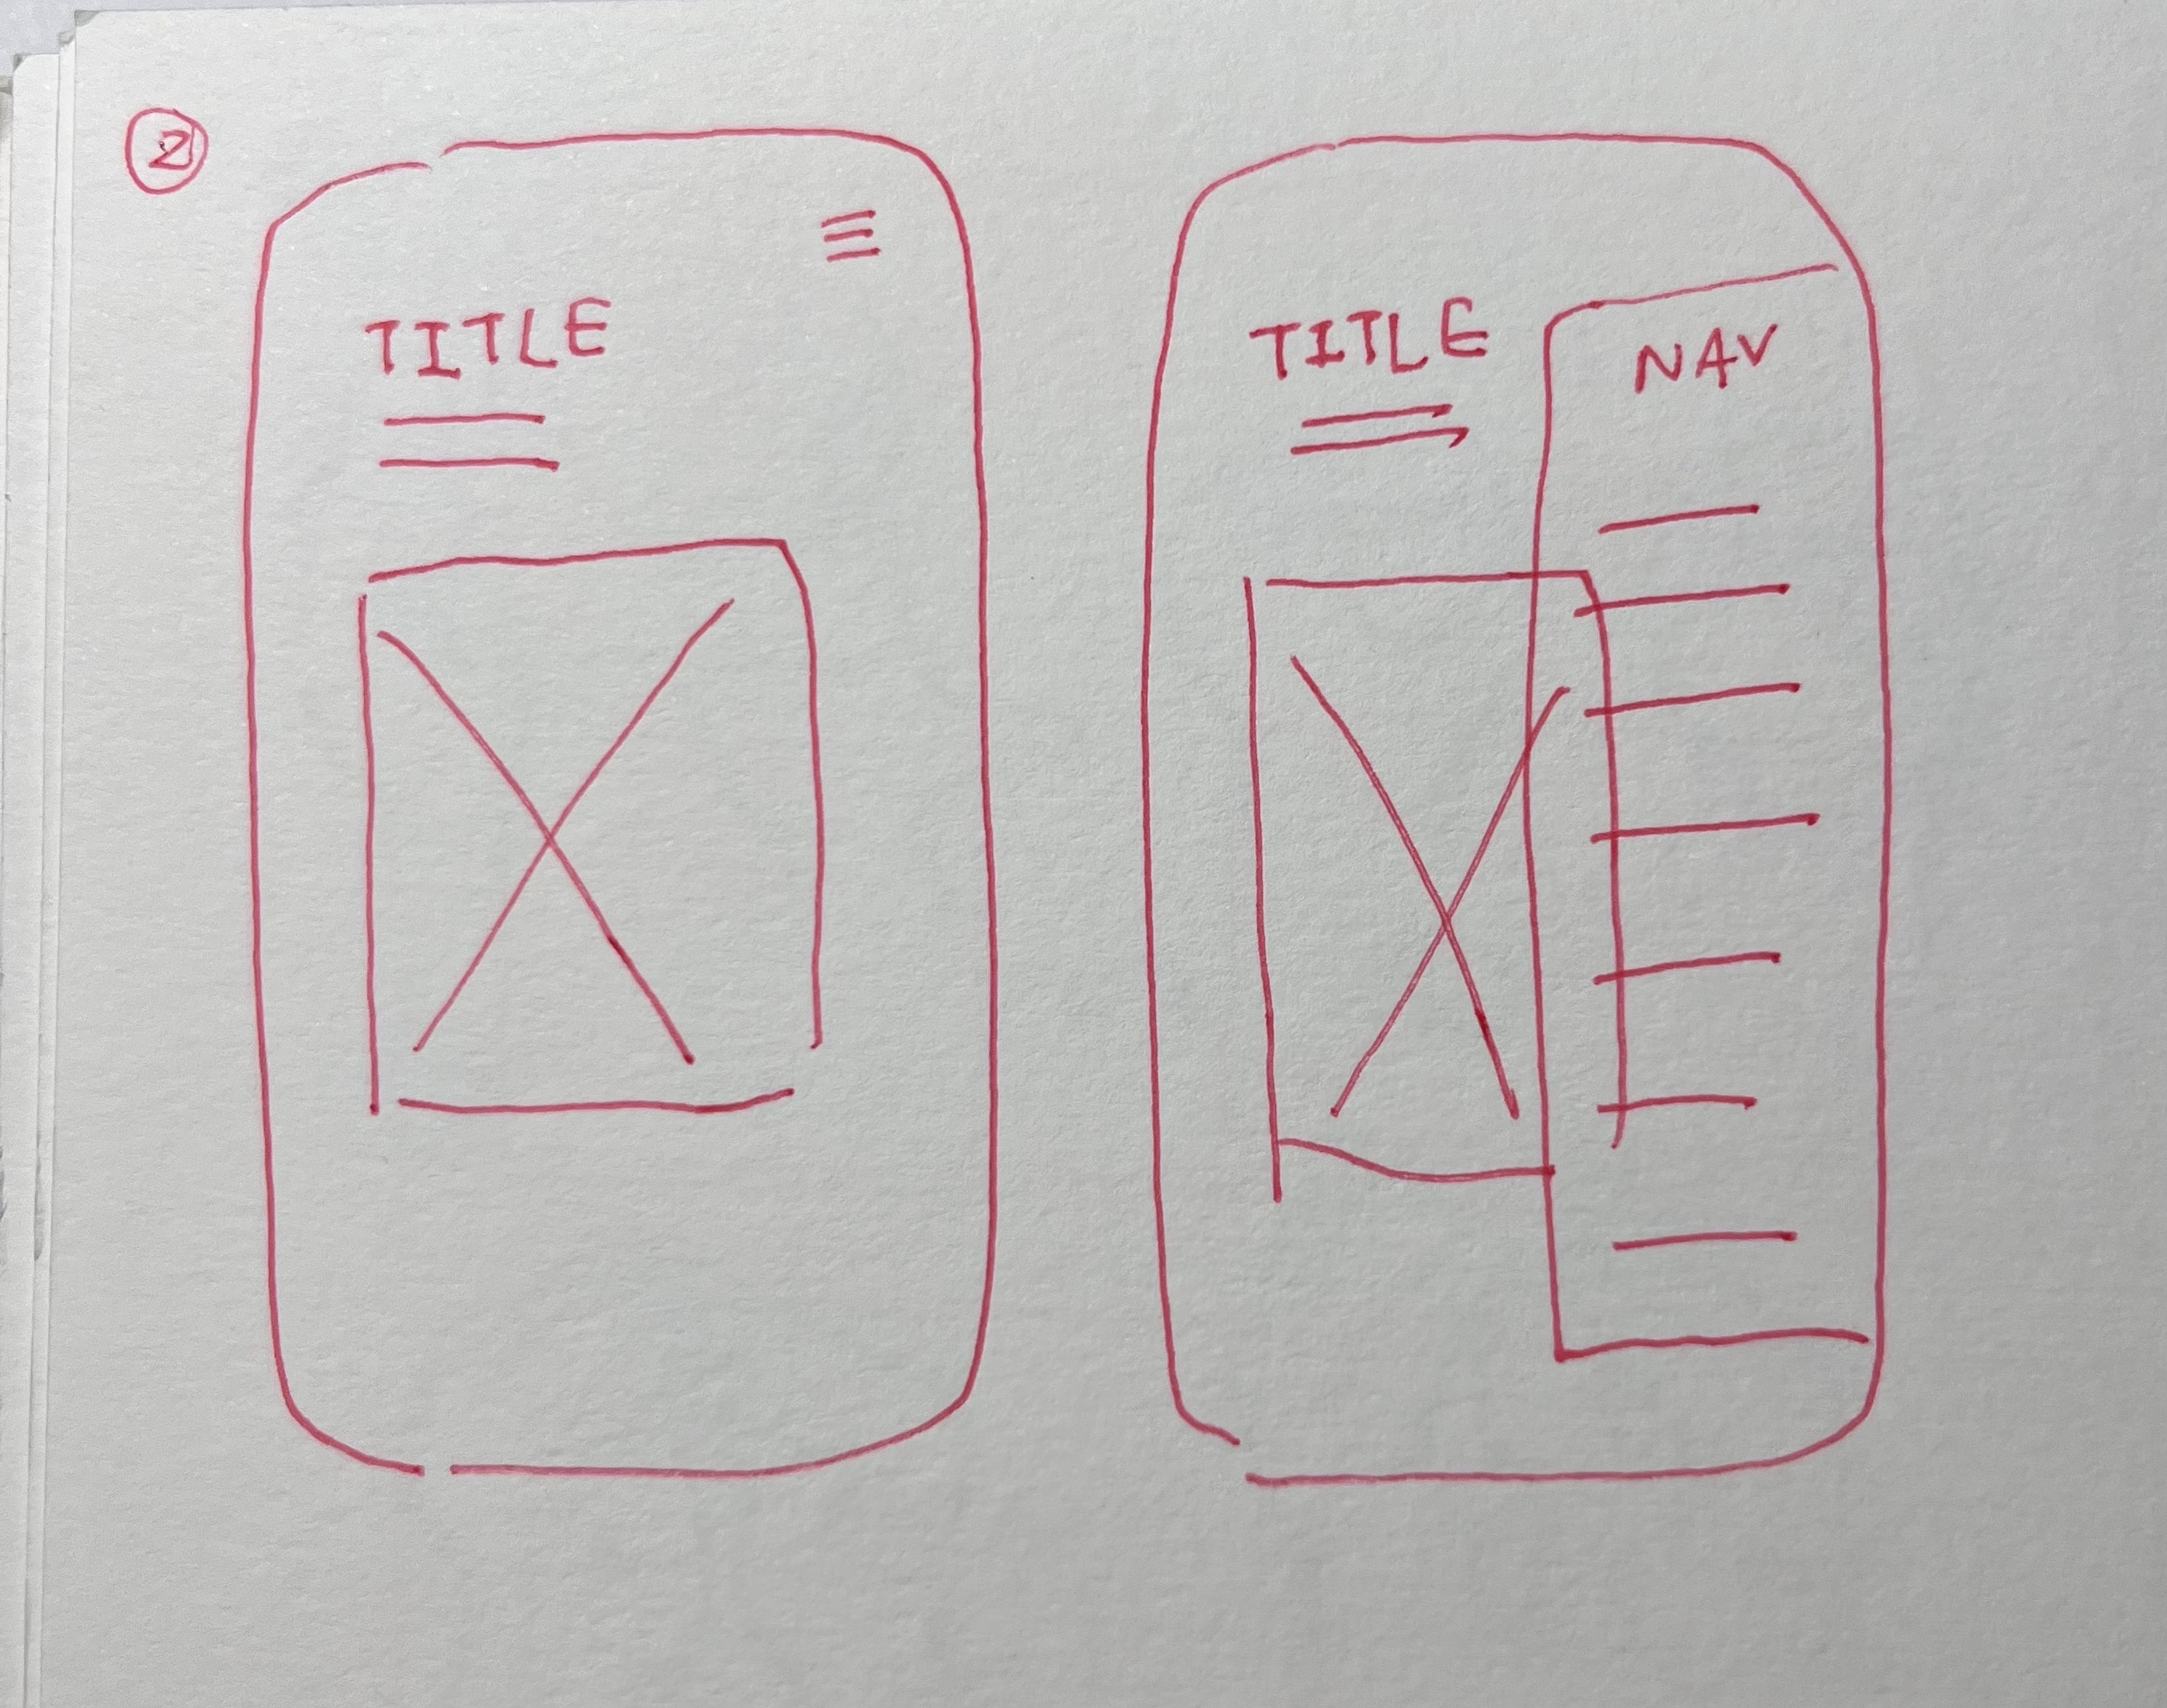 2
TITLE
TITLE
NAV